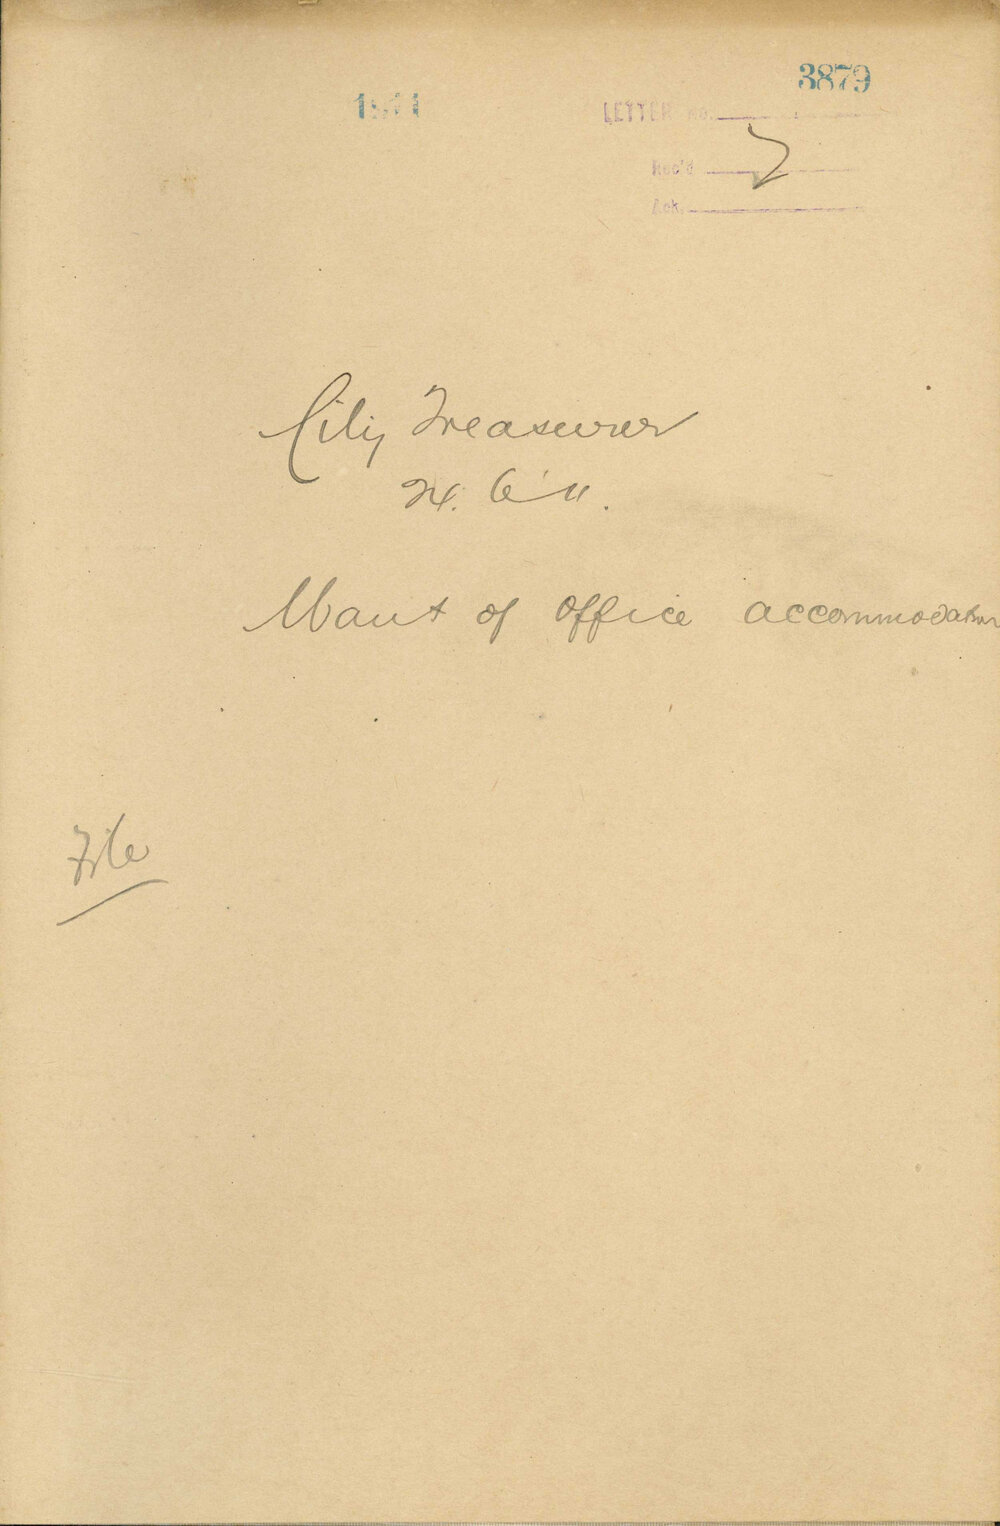 3879
LETTER No.
Rec'd
Ack.
City Treasurer
Want of office accommodation
File